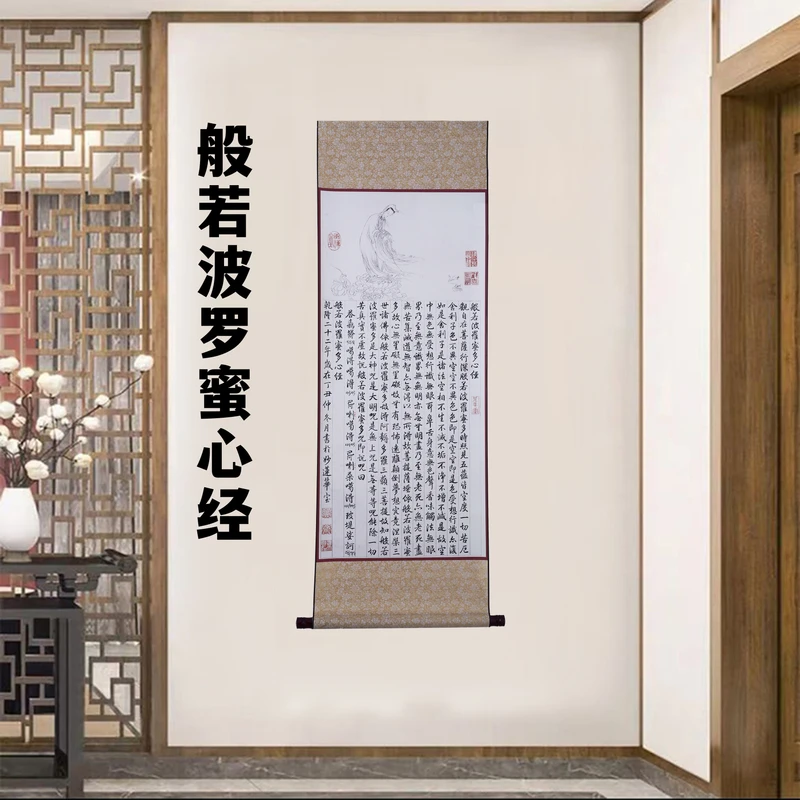 般若波罗蜜心经
般若波羅蜜多心經
觀自在菩薩行深般若波羅蜜多時照見五蘊皆空度一切苦厄
舍利子色不異空空不異色色即是空空即是色受想行識亦復
如是舍利子是諸法空相不生不滅不垢不淨不增不減是故空
中無色無受想行識無眼耳鼻舌身意無色聲香味觸法無眼
界乃至無意識界無無明亦無無明盡乃至無老死亦無老死盡
無苦集滅道無智亦無得以無所得故菩提薩埵依般若波羅蜜
多故心無罣礙無罣礙故無有恐怖遠離顛倒夢想究竟涅槃三
世諸佛依般若波羅蜜多故得阿耨多羅三藐三菩提故知般若
波羅蜜多是大神咒是大明咒是無上咒是無等等咒能除一切
苦真實不虛故說般若波羅蜜多咒即說咒曰
般若波羅蜜多心經
乾隆二十二年歲在丁丑仲冬月書於妙蓮華室